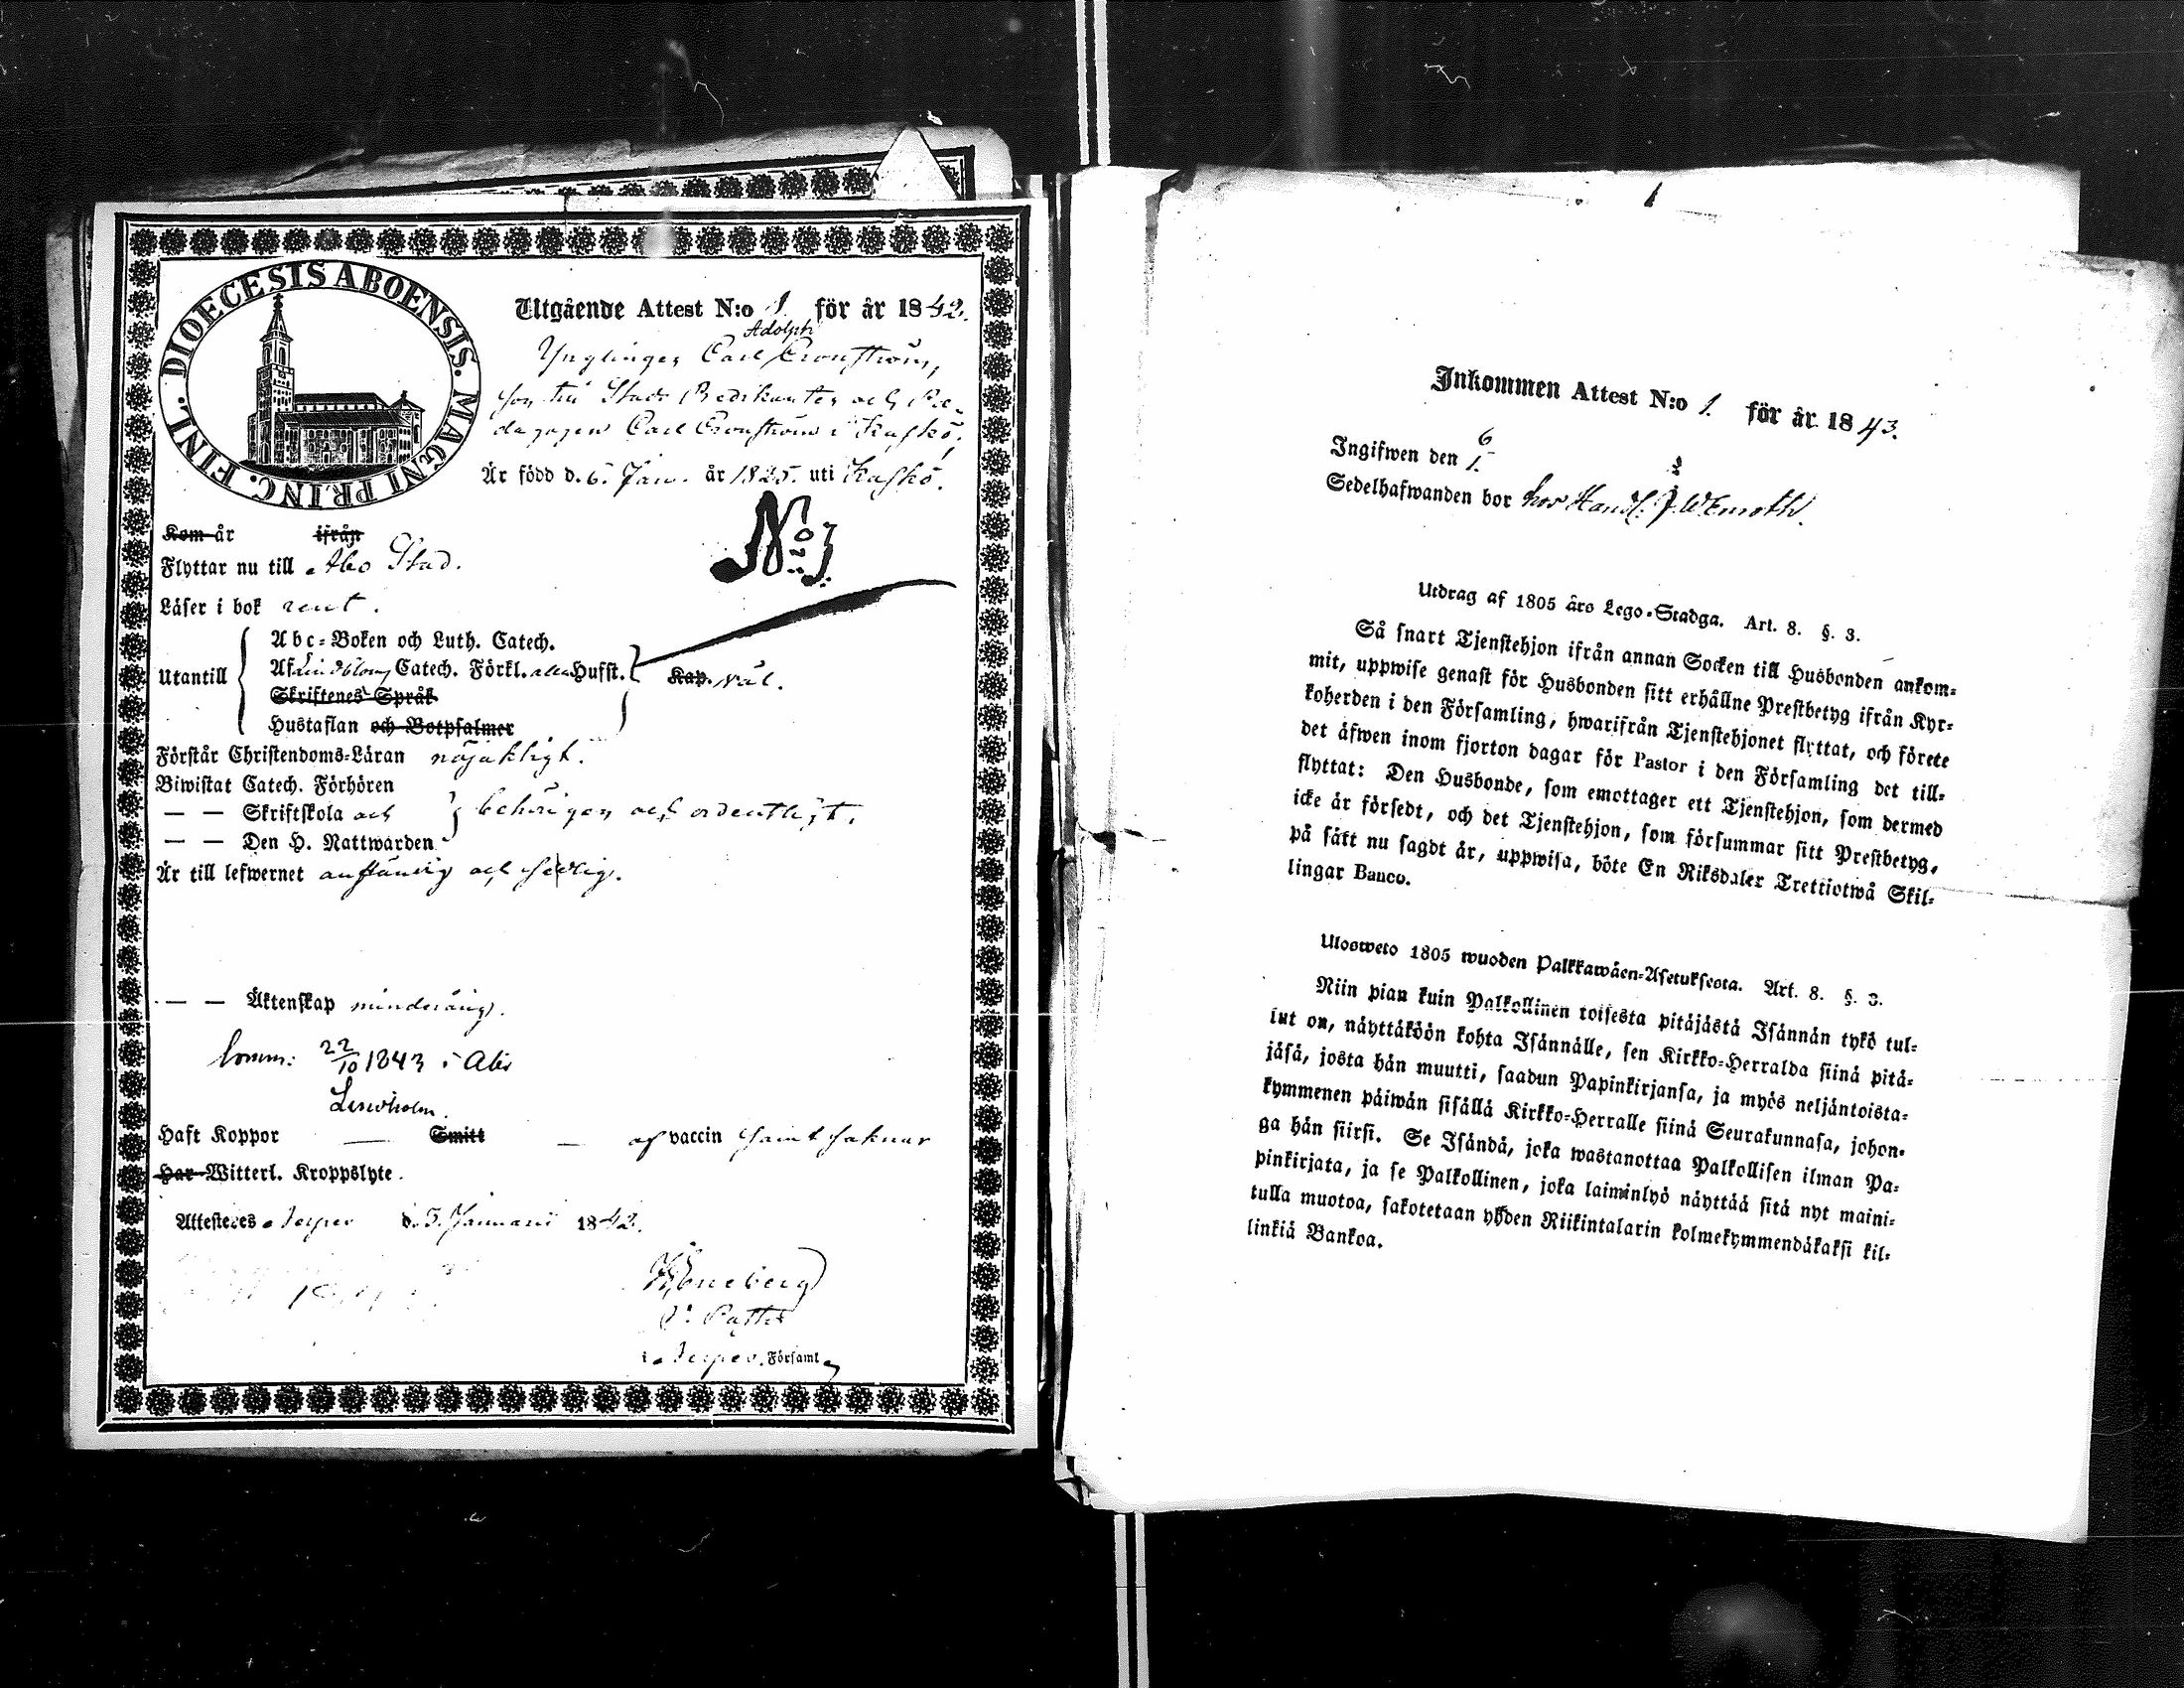 DIOECESIS ABOENSIS. MAGNI PRINC. FINL.
Utgående Attest N:o 1. för år 1842.
Adolph
Ynglingen Carl Cronström,
son till Stads Predikanten och Pæ-
dagogen Carl Cronström i Kaskö,
Är född d. 6. Jan. år 1825. uti Kaskö.
Kom år ifrån
No 1
Flyttar nu till Abo Stad.
Läser i bok rent.
Utantill
Abc-Boken och Luth. Catech.
Af Lindbloms Catech. Förkl. alla Hufst. Kap. väl.
Skriftenes Språk
Hustaflan och Botpsalmer
Förstår Christendoms-Läran nöjaktigt.
Biwistat Catech. Förhören
— — Skriftskola och behörigen och ordentligt.
— — Den H. Nattwarden
Är till lefwernet anständig och sedlig.
— — Äktenskap minderårig.
Comm: 22/10 1843 i Åbo
Haft Koppor — Smitt — af vaccin samt saknar
Har Witterl. Kroppslyte.
Attesteres d. 5. Januarii 1842.
V. Pastor
i Församl
Inkommen Attest N:o 1. för år 1843.
Ingifwen den 6/1.
Sedelhafwanden bor hos Handl. J. W. Enroth.
Utdrag af 1805 års Lego-Stadga. Art. 8. §. 3.
Så snart Tjenstehjon ifrån annan Socken till Husbonden ankom-
mit, uppwise genast för Husbonden sitt erhållne Prestbetyg ifrån Kyr-
koherden i den Församling, hwarifrån Tjenstehjonet flyttat, och förete
det äfwen inom fjorton dagar för Pastor i den Församling det till-
flyttat: Den Husbonde, som emottager ett Tjenstehjon, som dermed
icke är försedt, och det Tjenstehjon, som försummar sitt Prestbetyg,
på sätt nu sagdt är, uppwisa, böte En Riksdaler Trettiotwå Skil-
lingar Banco.
Ulosweto 1805 wuoden Palkkawäen-Asetuksesta. Art. 8. §. 3.
Niin pian kuin Palkollinen toisesta pitäjästä Isännän tykö tul-
lut on, näyttäköön kohta Isännälle, sen Kirkko-Herralda siinä pitä-
jäsä, josta hän muutti, saadun Papinkirjansa, ja myös neljäntoista-
kymmenen päiwän sisällä Kirkko-Herralle siinä Seurakunnasa, johon-
ga hän siirsi. Se Isändä, joka wastanottaa Palkollisen ilman Pa-
pinkirjata, ja se Palkollinen, joka laiminlyö näyttää sitä nyt maini-
tulla muotoa, sakotetaan yhden Riikintalarin kolmekymmendäkaksi kil-
linkiä Bankoa.